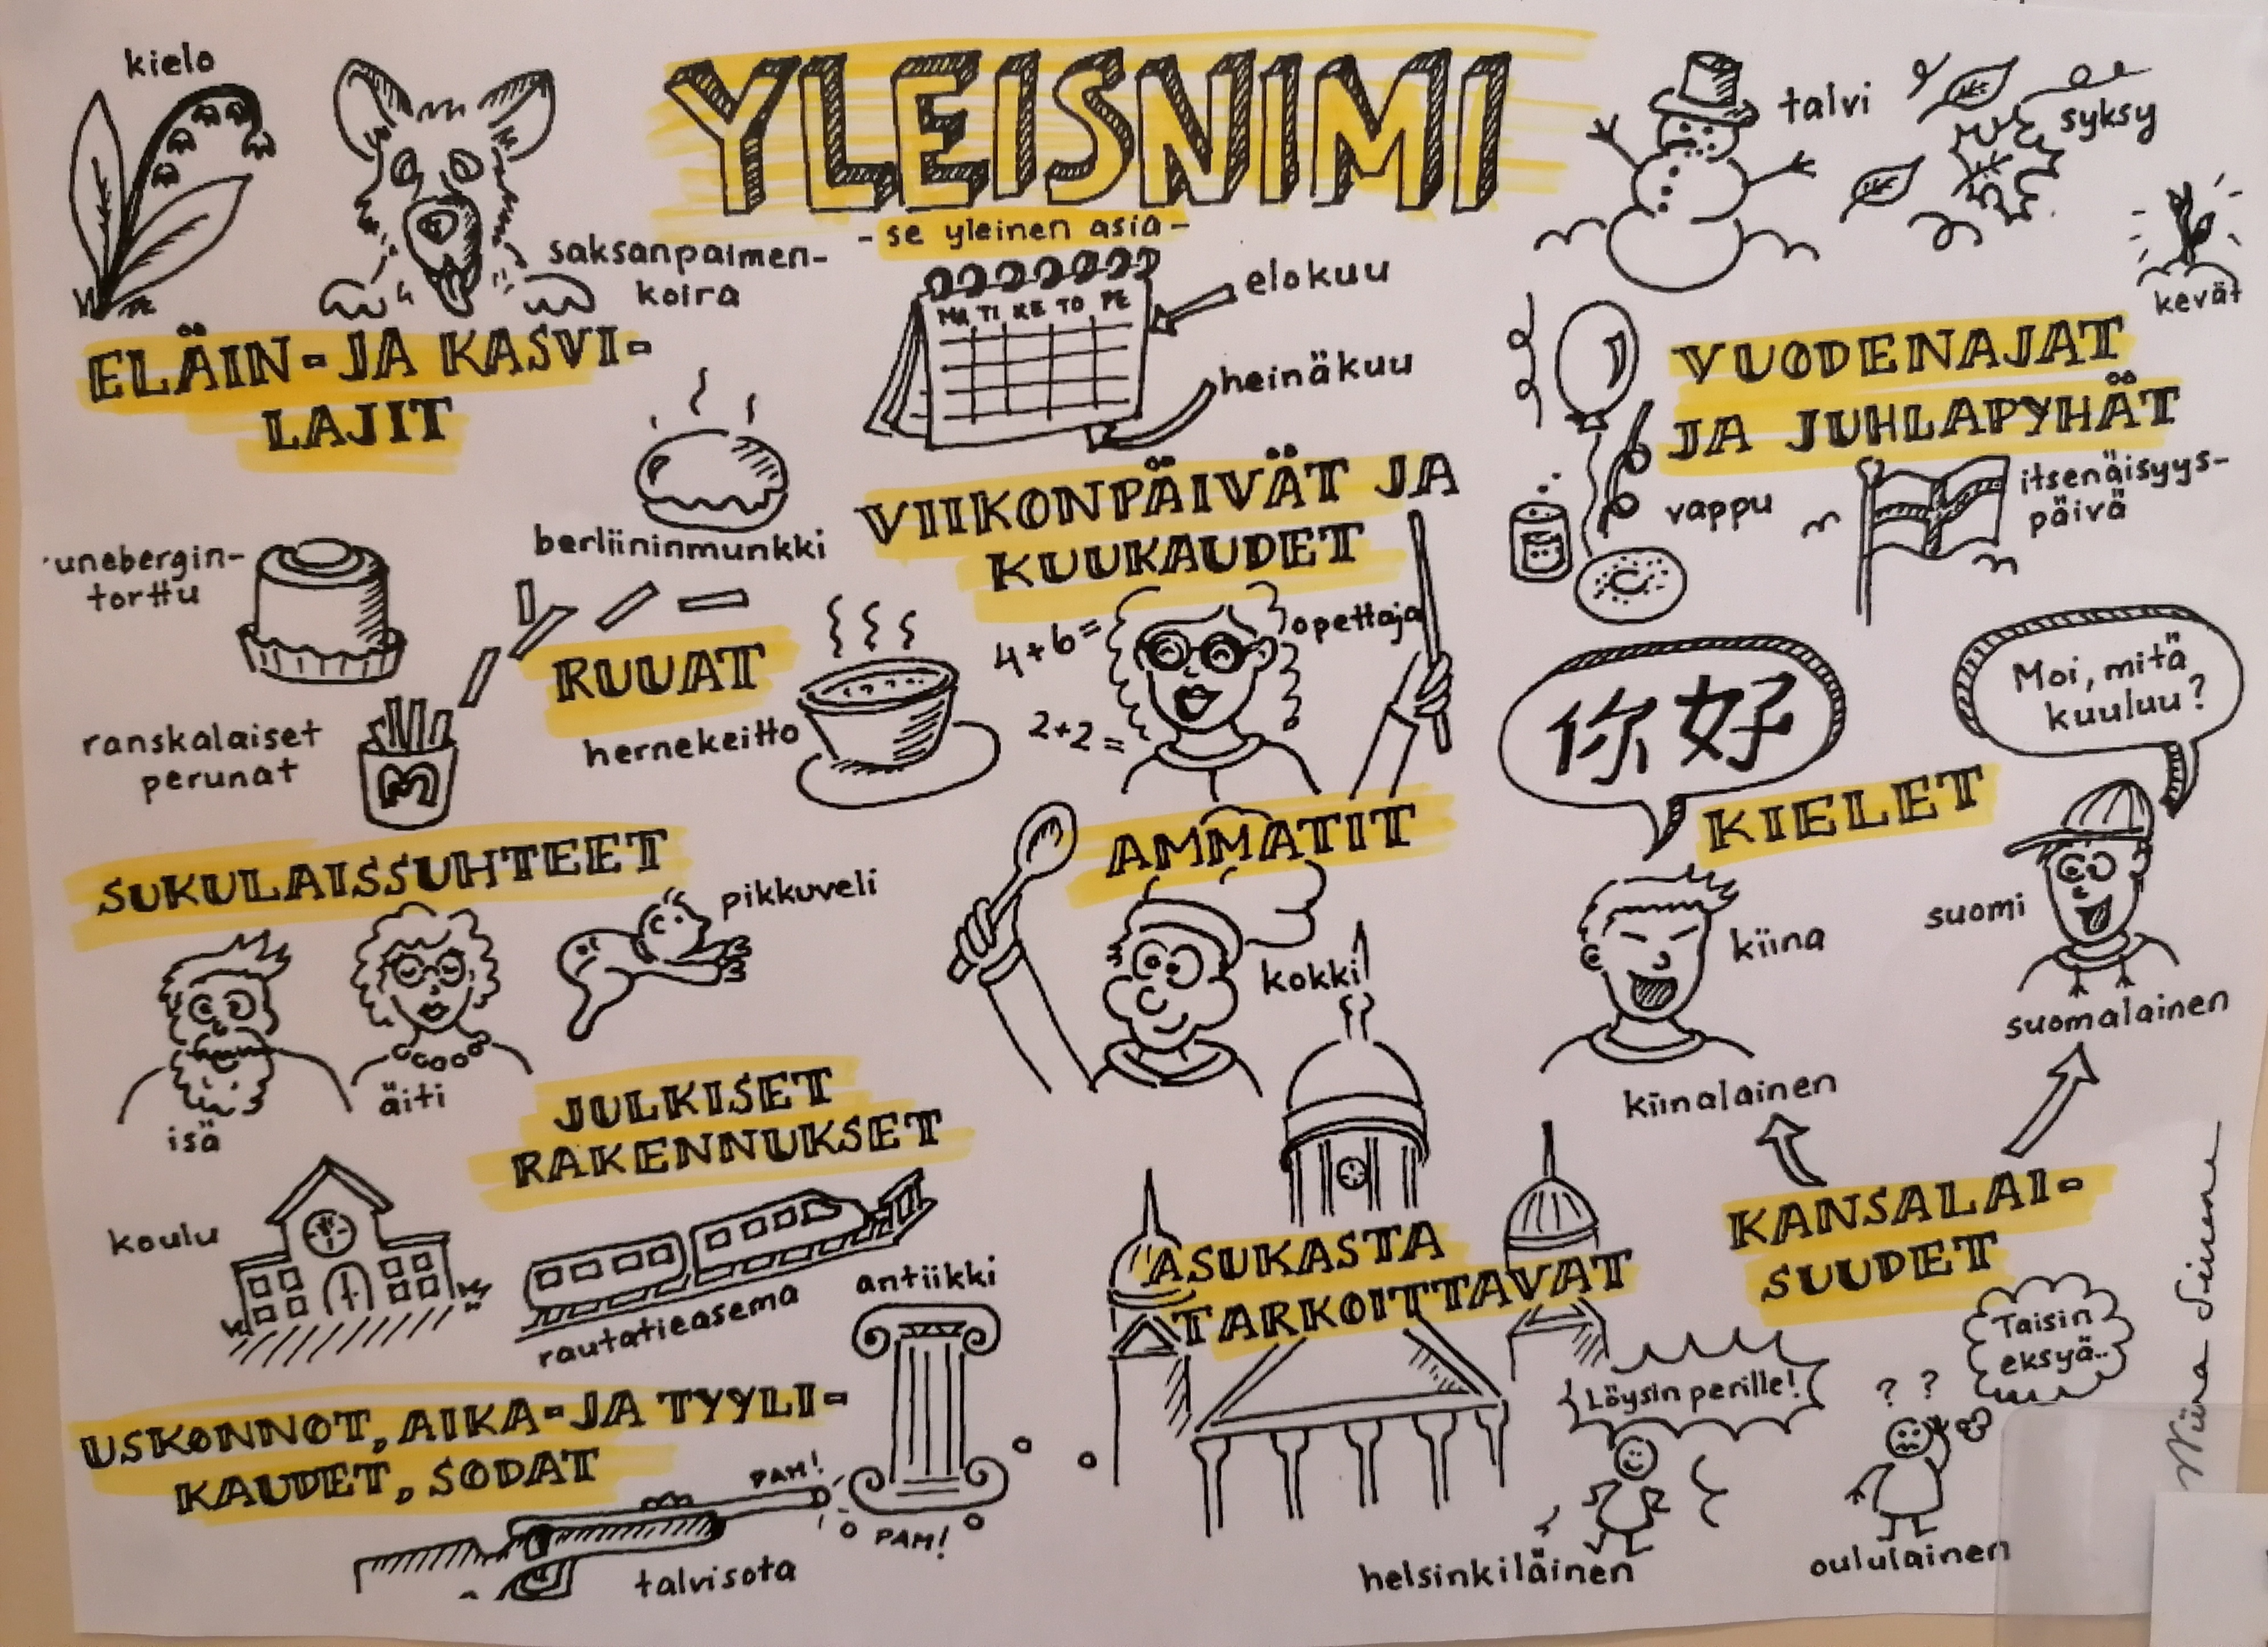 YLEISNIMI
- se yleinen asia -
kielo
saksanpaimen-
koira
ELÄIN- JA KASVI-
LAJIT
MA TI KE TO PE
elokuu
heinäkuu
VIIKONPÄIVÄT JA
KUUKAUDET
talvi
syksy
kevät
VUODENAJAT
JA JUHLAPYHÄT
vappu
itsenäisyys-
päivä
berliininmunkki
unebergin-
torttu
RUUAT
ranskalaiset
perunat
hernekeitto
4+6=
2+2=
opettaja
AMMATIT
kokki
你好
Moi, mitä
kuuluu?
KIELET
kiina
suomi
kiinalainen
suomalainen
KANSALAI-
SUUDET
SUKULAISSUHTEET
pikkuveli
isä
äiti
JULKISET
RAKENNUKSET
koulu
rautatieasema
antiikki
USKONNOT, AIKA- JA TYYLI-
KAUDET, SODAT
PAM!
PAM!
talvisota
ASUKASTA
TARKOITTAVAT
Löysin perille!
helsinkiläinen
Taisin
eksyä..
? ?
oululainen